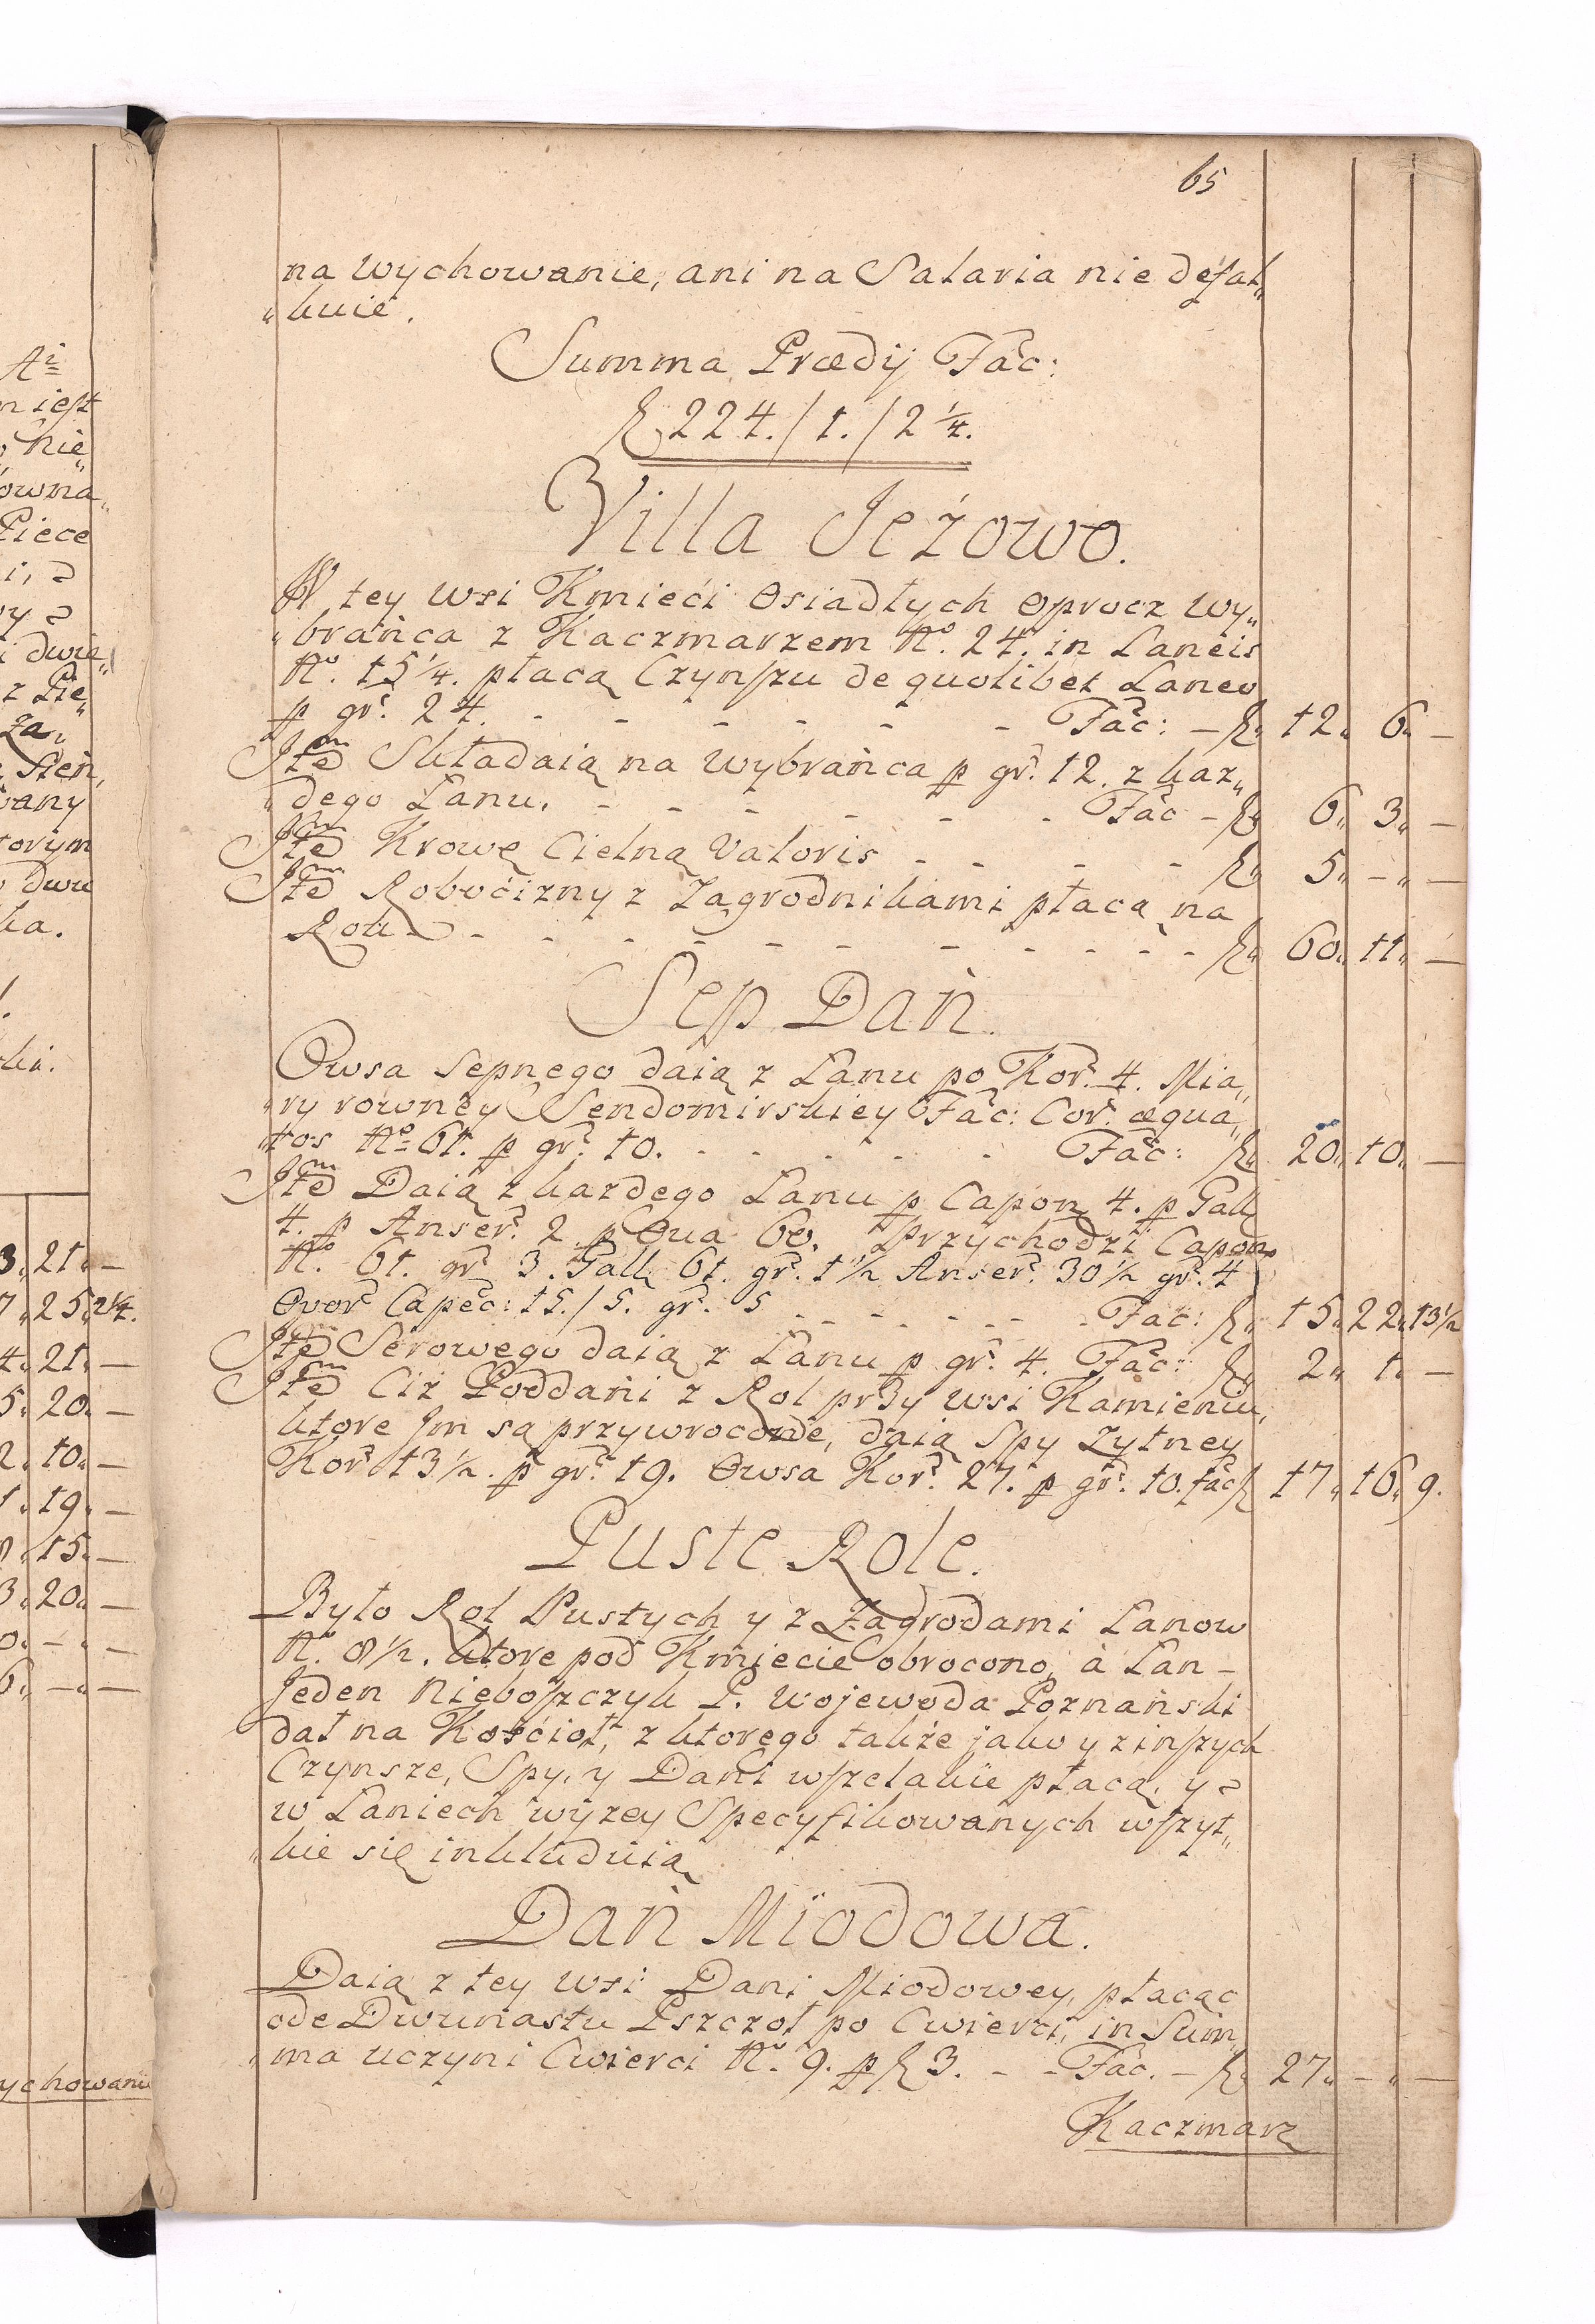 65
na wychowanie, ani na Salaria nie defal„
„kuie.
Summa Prædij Fac:
f 224./1./2 ¼.
Villa Jeżowo.
W tey wsi Kmieći Osiadłych oprocz wy„
„brańca z Kaczmarzem No. 24. in Laneis
No. 15¼. płacą Czynszu de quolibet Laneo
p gr. 24. - - - - - - Fac: - f 12„ 6„ —
Itẽ Składaią na wybrańca p gr. 12. z każ„
„dego Łanu. - - - - - - Fac - f 6„ 3„ —
Itẽ Krowę Cielną Valoris - - - - f 5„ - „ —
Itẽ Roboćizny z Zagrodnikami płacą na
Rok - - - - - - - - - - f 60„ 11„ —
Sep Dań.
Owsa Sepnego daią z Łanu po Kor. 4. Mia„
„ry rowney Sendomirskiey Fac: Cor. æqua„
„tos No 61. p gr. 10. - - - - - Fac: f 20„ 10„ —
Itẽ Daią z każdego Łanu p Capon 4. p Gall
4. p Anser. 2 p Ova 60. przychodzi Capon
No. 61. gr. 3. Gall 61. gr. 1½ Anser. 30½ gr. 4
Ovor Capec: 15./5. gr. 5 - - - - - - Fac: f 15„ 22„ 13½
Itẽ Serowego daią z Łanu p gr. 4. Fac: f 2„ 1„ —
Itẽ Ciż Poddani z Rol przy wsi Kamieniu,
ktore Jm są przywrocone, daią Spy Zytney
Kor 13½. p gr. 19. Owsa Kor. 27. p gr. 10. fac f 17„ 16„ 9.
Puste Role.
Było Rol Pustych y z Zagrodami Łanow
No. 8½. ktore pod Kmiecie obrocono, à Łan -
Jeden Nieboszczyk P. Wojewoda Poznański
dał na Kośćioł, z ktorego także jako y z inszych
Czynsze, Spy, y Dani wszelakie płacą, y
w Łaniech wyżey Specyfikowanych wszyt„
„kie się inkluduią
Dań Miodowa.
Daią z tey wsi Dani Miodowey, płacąc
ode Dwunastu Pszczoł po Cwierci, in Sum„
„ma uczyni Cwierci No. 9. p f 3. - - Fac. - f 27„ - „ —
Kaczmarz